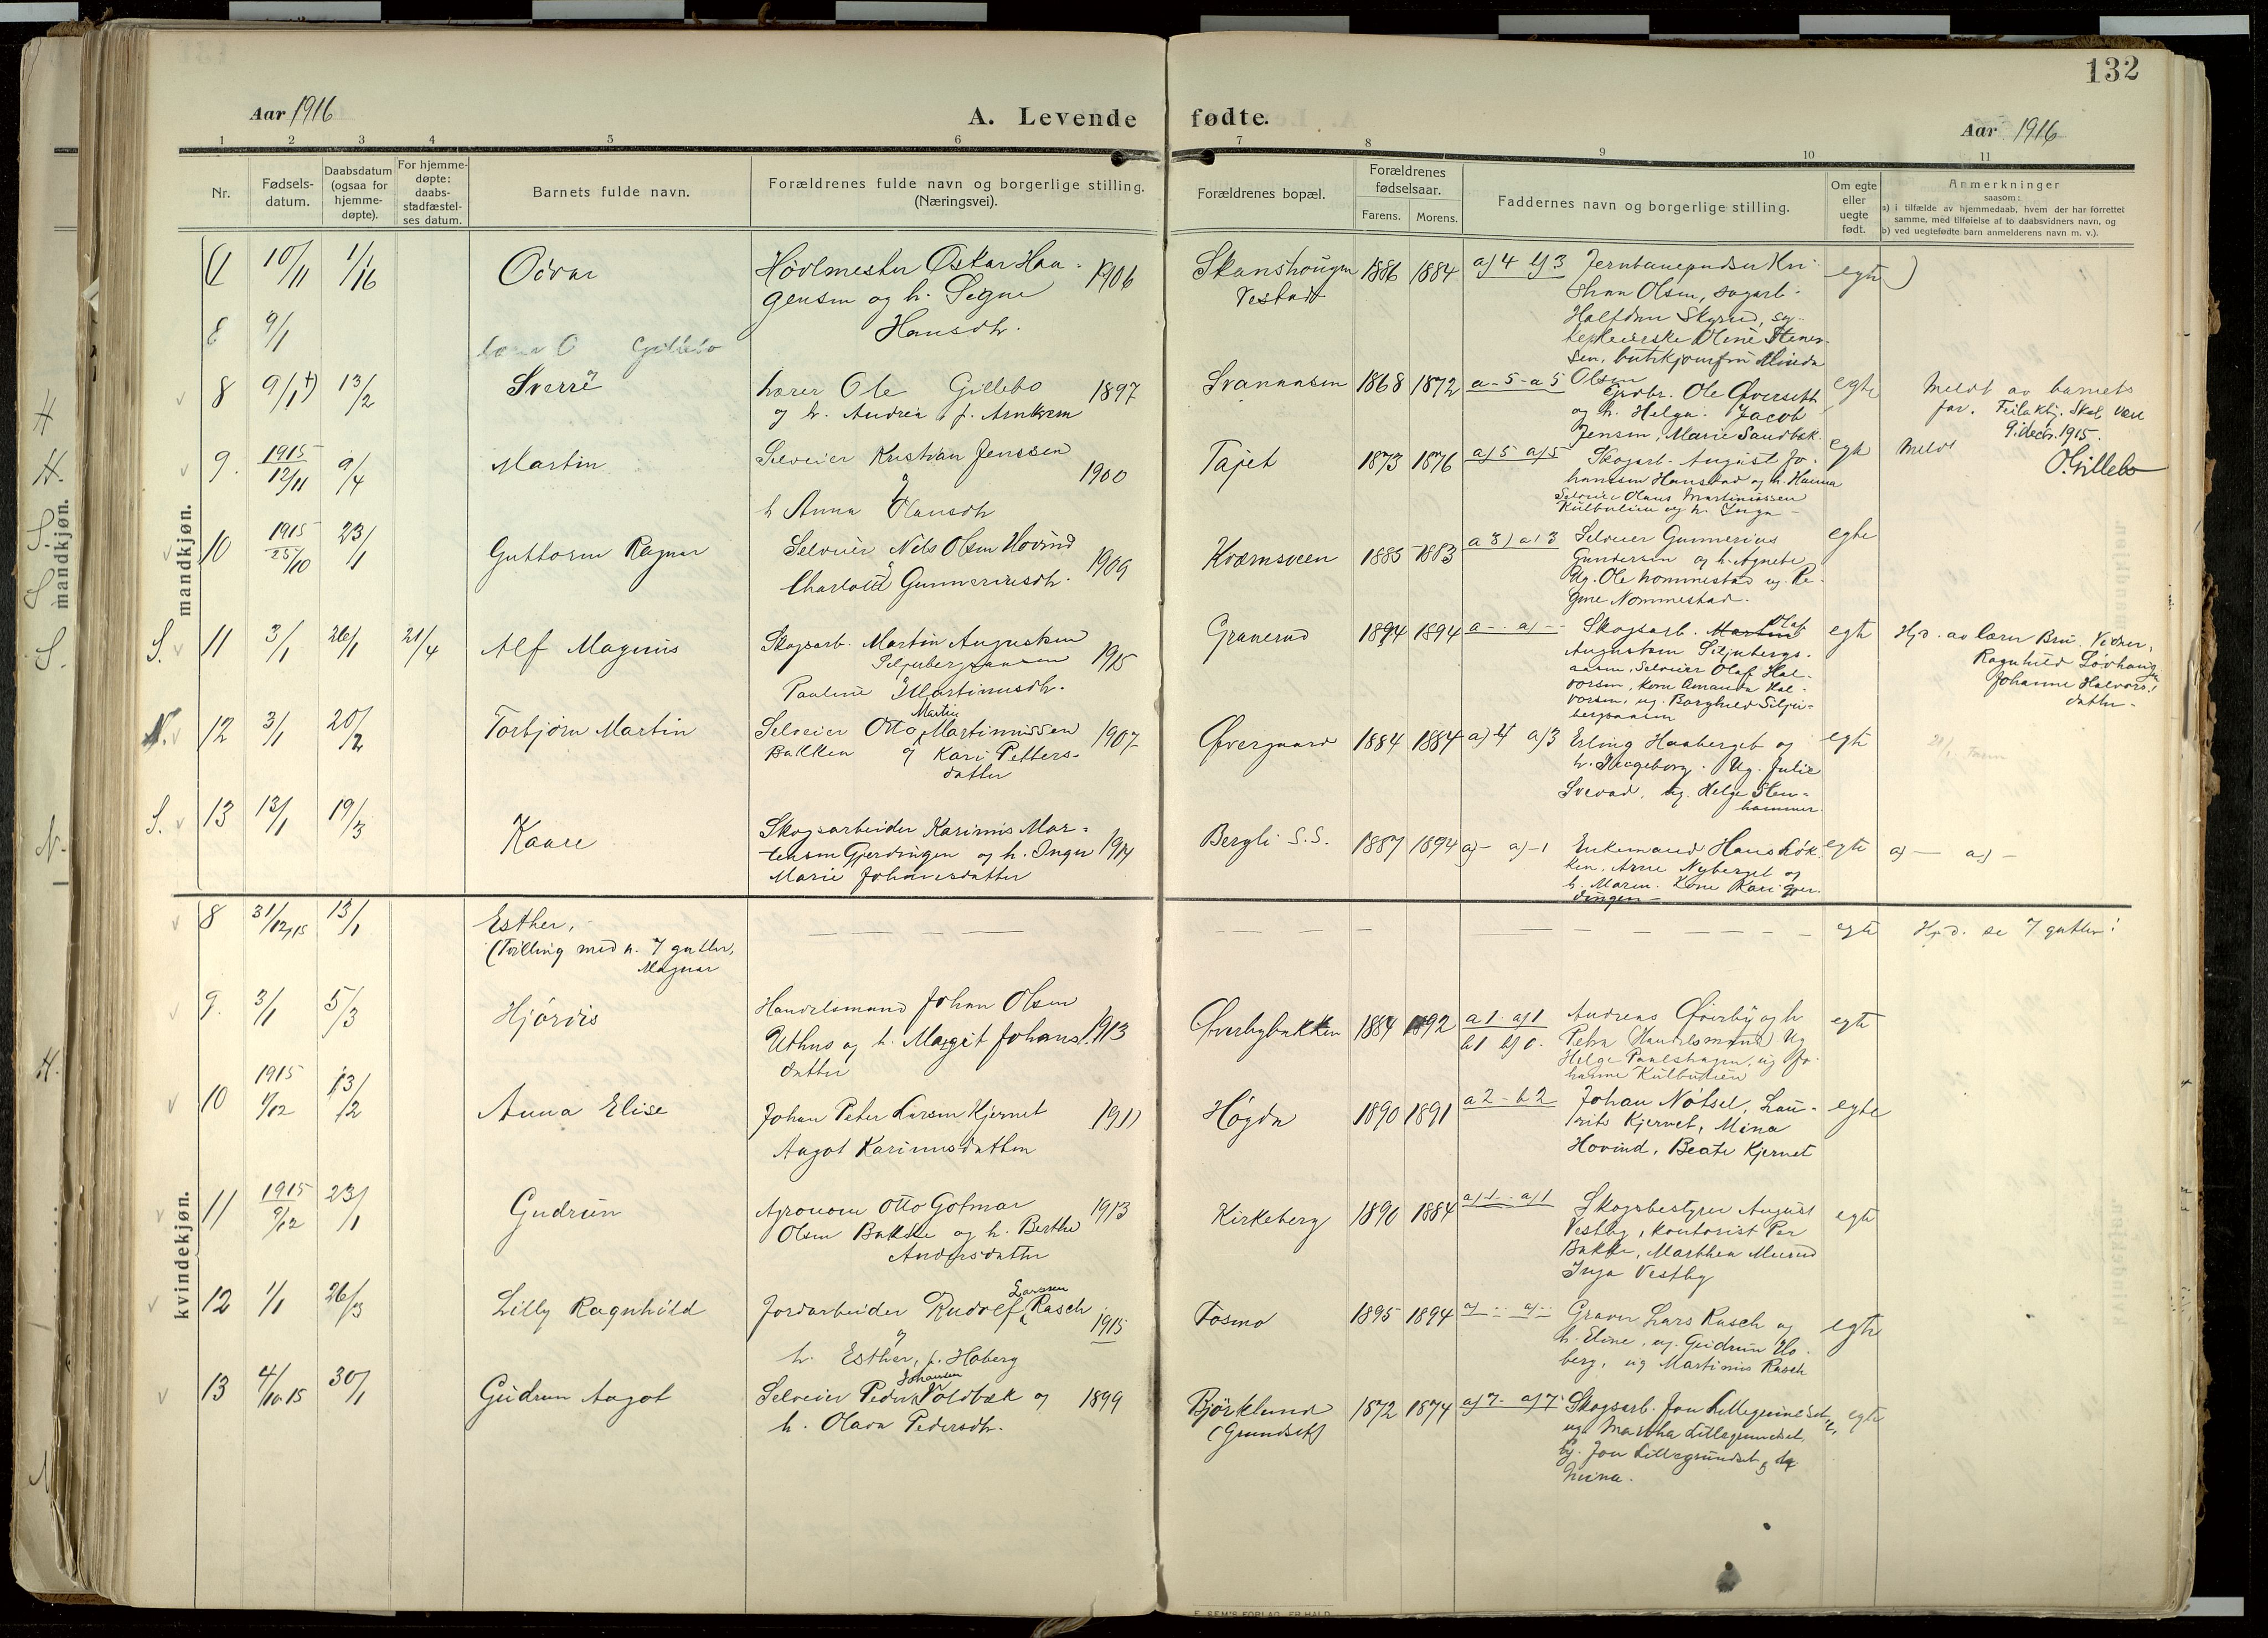 132
Aar 1916
A. Levende
fødte.
Aar 1916
1 2 3 4 5 6 7 8 9 10 11
Nr.
Fødsels-
datum.
Daabsdatum
(ogsaa for
hjemme-
døpte).
For hjemme-
døpte:
daabs-
stadfæstel-
ses datum.
Barnets fulde navn.
Forældrenes fulde navn og borgerlige stilling.
(Næringsvei).
Forældrenes bopæl.
Forældrenes
fødselsaar.
Farens. Morens.
Faddernes navn og borgerlige stilling.
Om egte
eller
uegte
født.
Anmerkninger
saasom:
a) i tilfælde av hjemmedaab, hvem der har forrettet
samme, med tilføielse af to daabsvidners navn, og
b) ved uegtefødte barn anmelderens navn m. v.).
mandkjøn.
10/11 1/16 Oivar
Høvlmester Oskar Haa-
gensen og h. Signe
Hansdtr.
1906
Skanshougen
Vestad
1886 1884 a) 4 b) 3
Jernbanepudser Kri-
stian Olsen, sagarb.
Halfdan Skyrud, sy-
Olsen
egte )
9/1
Gillebo
8 9/1 +) 13/2 Sverre
lærer Ole Gillebo
og h. Andrea f. Arnkvern
1897
Svanaasen 1868 1872 a-5-a 5
Grdbr. Ole Øverseth
og h. Helga. Jacob
Jensen, Marie Sandbæk.
egte
Meldt av barnets
far. Feilaktig. Skal være
9. decbr. 1915.
O. Gillebo
9. 1915 12/11 9/4 Martin
Selveier Kristian Jenssen
og
h Anna Olausdtr
1900
Tajet 1873 1876 a) 5 a) 5
Skogsarb. August Jo-
hanssen Hanstad og h. Hanna
Selveier Olaus Martiniussen
Kulbulien og h. Inga -
egte
Meldt
10 1915 25/10 23/1 Guttorm Ragnar
Selveier Nils Olsen Hovind
og
Charlotte Gunneriusdtr.
1909
Kværnsveen 1885 1883 a 3) a) 3
Selveier Gunnerius
Gundersen og h. Agnete
Ug. Ole Nommestad ug. Re-
gine Nommestad.
egte
S. 11 3/1 26/1 21/4 Alf Magnus
Skogsarb. Martin Augustsen
Siljubergsaasen
og
Pauline Martinusdtr.
1915
Granerud 1894 1894 a - . a) -
Skogsarb. Martin Olaf
Augustsen Siljubergs-
aasen, Selveier Olaf Hal-
vorsen, kone Amanda Hal-
vorsen, ug. Borghild Silju-
bergsaasen
egte
Hjd. av lærer Bru. Vidner,
Ragnhild Løvhaug
Johanne Halvors-
datter -
N. 12 3/1 20/2 Torbjørn Martin
Selveier Otto Martin Martinussen
Bakken og Kari Petters-
datter
1907
Øvergaard 1884 1884 a) 4 a) 3
Erling Haaberget og
h. Ingeborg. Ug. Julie
Svevad, ug. Helge Sten-
hammer.
egte
S. 13 13/1 19/3 Kaare
Skogsarbeider Karinius Mar-
tensen Gjerdingen og h. Inga
Marie Johannesdatter
1914
Bergli S.S. 1887 1894 a) - a) -1
Enkemand Hans Løk-
ken, Arne Nyberget og
h. Maren. Kone Kari Gjer-
dingen -
egte
a) - a) -
kvindekjøn.
8 31/12,15 13/1 Esther,
(Tvilling med n. 7 gutter,
Magnar
egte
Hjd. se 7 gutter!
9. 3/1 5/3 Hjørdis
Handelsmand Johan Olsen
Uthus og h. Margit Johans-
datter
1913
Øverbybakken 1884 1892 a 1 a) 1
b 1 b) 0.
Andreas Øverby og h
Petra (Handelsmand) Ug
Helge Paulshagen, ug Jo-
hanne Kulbulien
egte
10 1915 1/12 13/2 Anna Elise
Johan Peter Larsen Kjernet
Aagot Kariniusdatter
1911
Høgda 1890 1891 a 2 - b 2
Johan Nötsel, Lau-
rits Kjernet, Mina
Hovind, Beate Kjernet
egte
11 1915 9/12 23/1 Gudrun
Agronom Otto Gotmar
Olsen Bakke og h. Berthe
Andersdatter
1913
Kirkeberg 1890 1884 a) 1 . a) 1
Skogsbestyrer August
Vestby, kontorist Per
Bakke, Marthea Murud
Inga Vestby
egte
12 1/1 26/3 Lilly Ragnhild
Jordarbeider Rudolf Larssen Rasch
og
h. Esther, f. Hoberg
1915
Fosmo 1895 1894 a) - a) -
Graver Lars Rasch og
h. Eline, ug. Gudrun Ho-
berg, ug Martinus Rasch
egte
13 4/10.15 30/1 Gudrun Aagot
Selveier Peder Johansen Voldbæk og
h. Olava Pedersdtr.
1899
Bjørklund
(Grundset)
1872 1874 a) 7 - a) 7
Skogsarb. Jon Lillegrundset,
ug. Martha Lillegrundset,
Jon Lillegrundset
egte
E. SEM'S FORLAG, FR.HALD